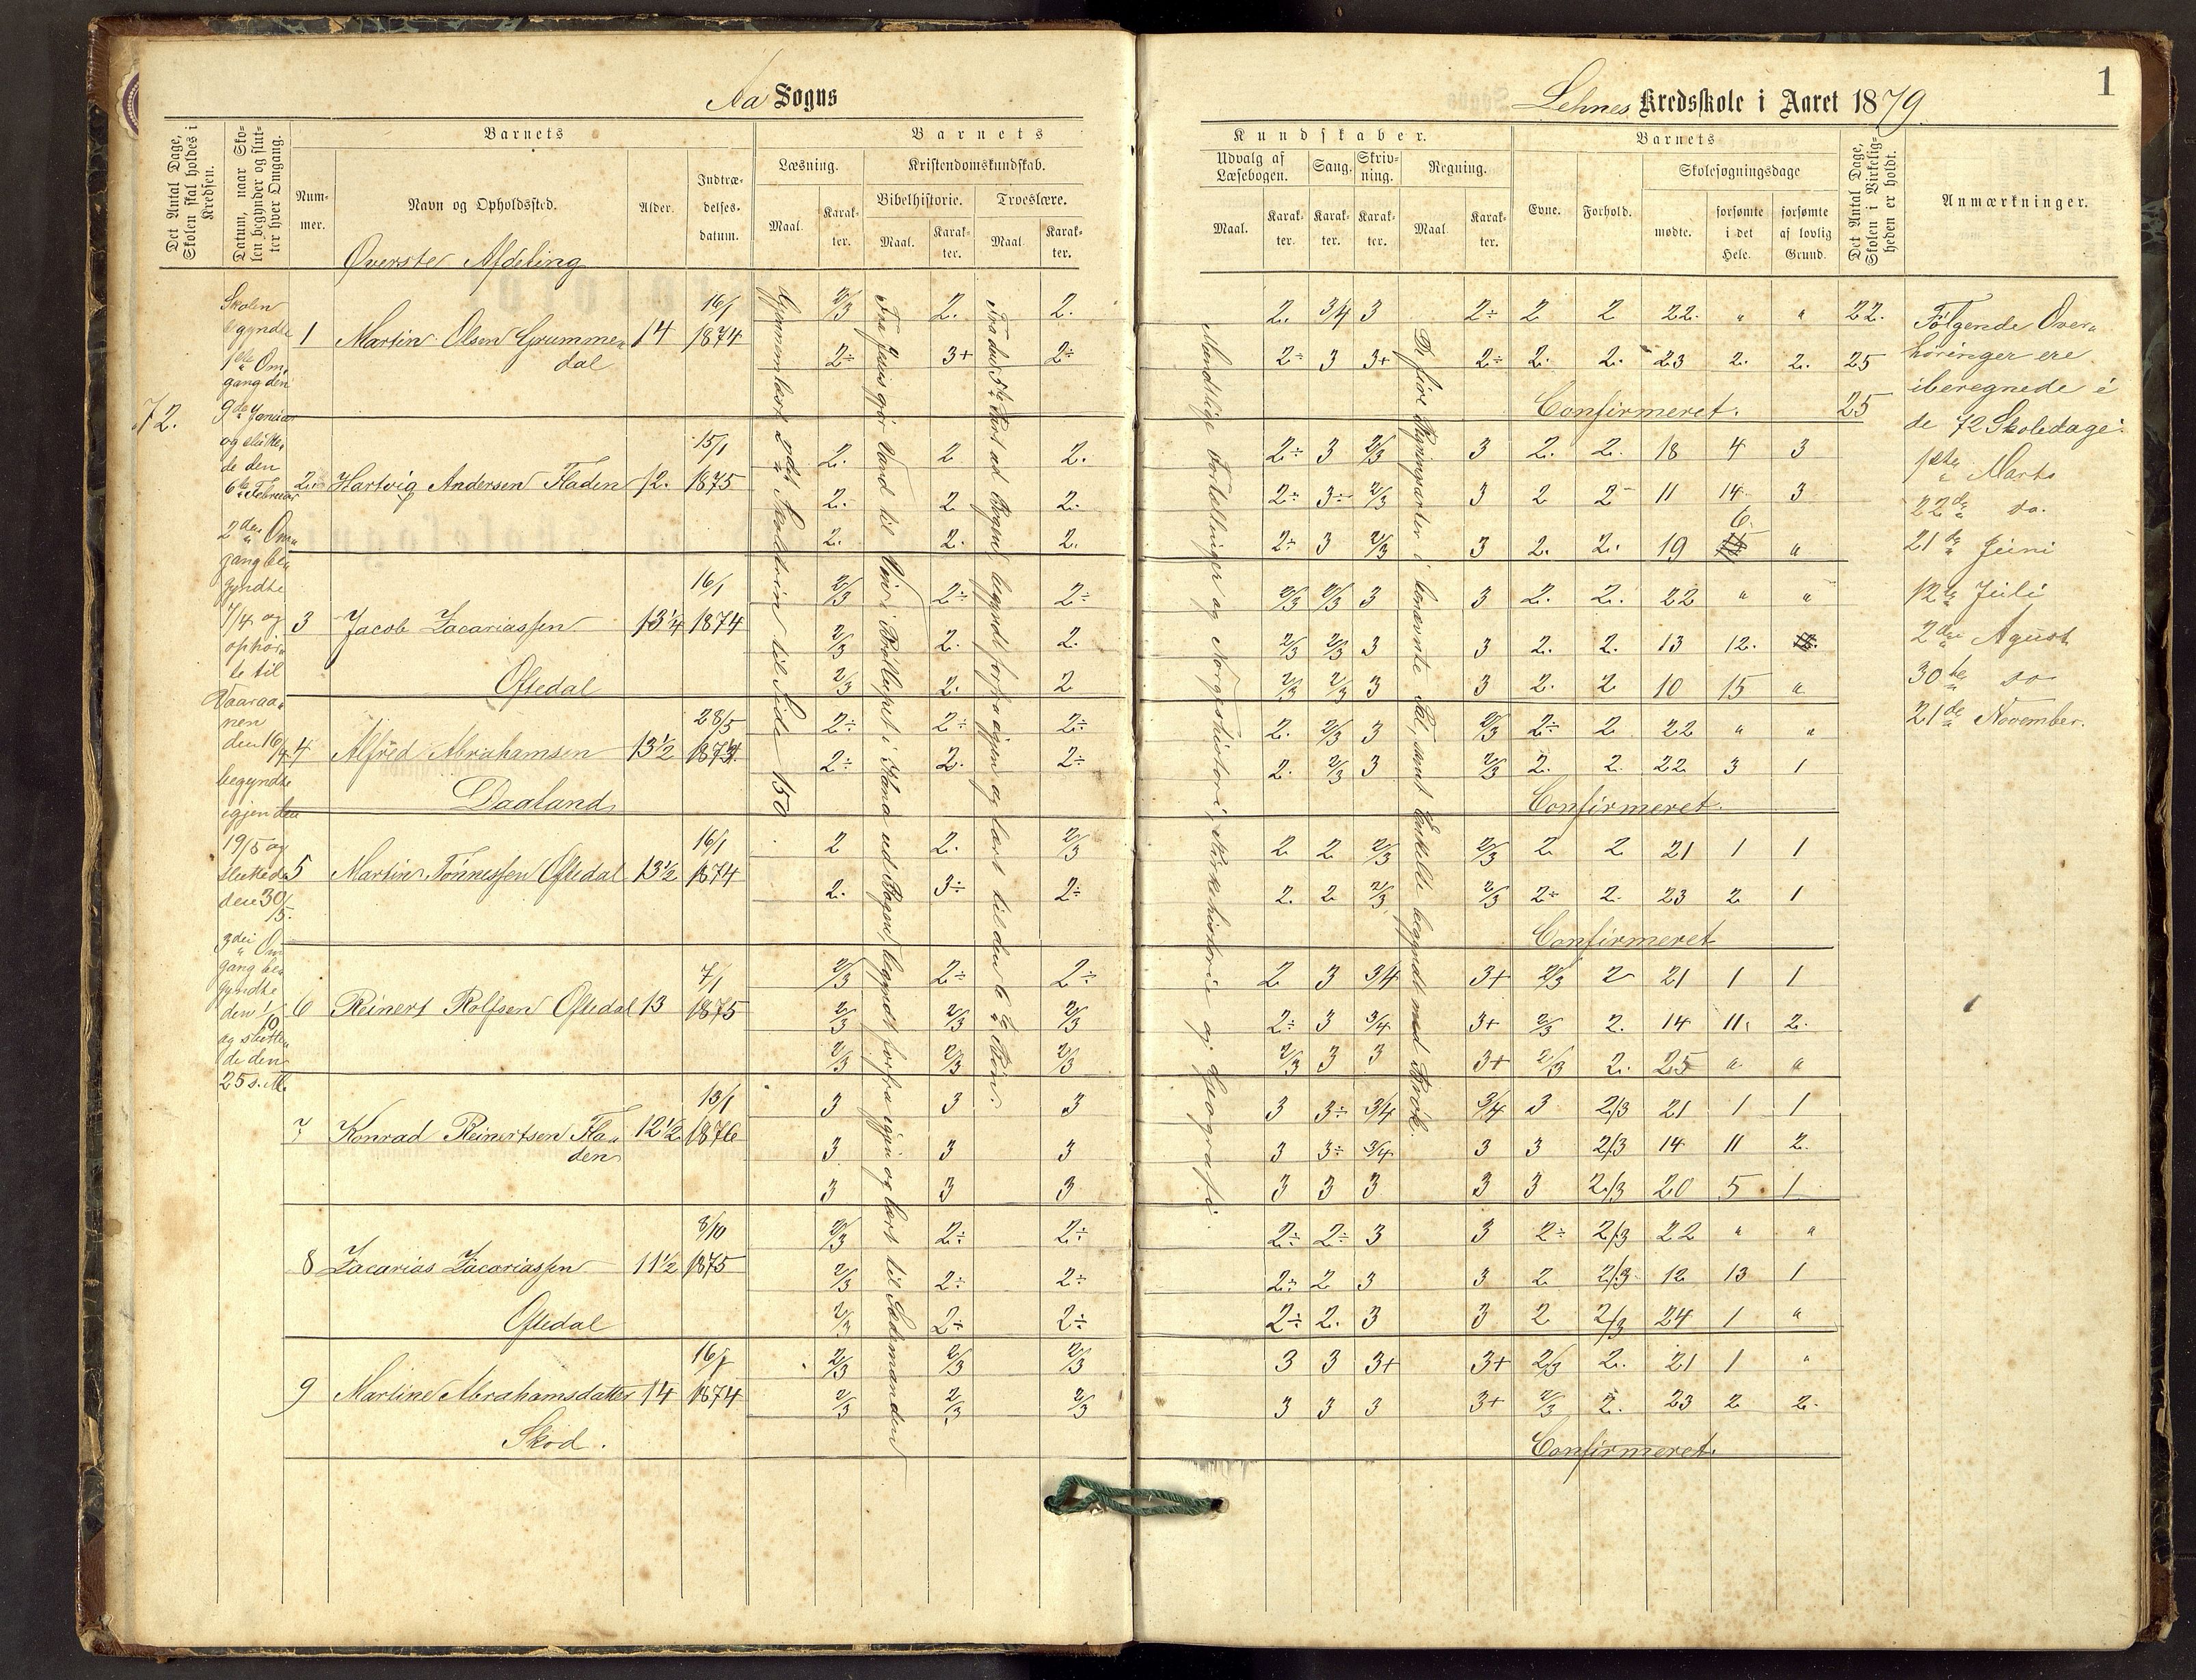 Aa Sogns
Det Antal Dage, Skolen skal holdes i Kredsen.
Datum, naar Skolen begynder og slutter hver Omgang.
Barnets
Nummer.
Navn og Opholdssted.
Alder.
Indtrædelsesdatum.
Barnets
Læsning.
Kristendomskundskab.
Bibelhistorie. Troeslære.
Maal. Karakter. Maal. Karakter. Maal. Karakter.
Overste Afdeling
72.
Skolen
begyndte
1ste Om„
gang den
9de Januar
og slutte„
de den
6te Februar
2den Om„
gang be„
gyndte
1/4 og
ophør„
te til
Vaaraa„
nen
den 16/4
begyndte
igjen den
19/5 og
sluttede
den 30/5.
3die Om„
gang be„
gyndte
den 1/10
og slutte„
de den
25 s. M.
Gjennemlært 2det Skoletrin til Side 150.
Fra Jesus gjør Vand til Vin i Bryllupet i Kana ud Bogen, begyndt forfra igjen og lært til Stedmanden
Fra den 5te Part ud Bogen, begyndt forfra igjen og lært til den 6te Bøn.
1 Martin Olsen Grumme„ 14 16/1 1874
dal
2/3 2. 2.
2÷ 3+ 2÷
2. Hartvig Andersen Fladen 12. 15/1 1875
2. 2. 2.
2. 2 2.
2. 2. 2.
3 Jacob Zacariassen 13 1/4 16/1 1874
Oftedal
2/3 2÷ 2÷
2/3 2. 2.
2/3 2. 2
4 Alfred Abrahamsen 13 1/2 28/5 1873.
Daaland
2÷ 2÷ 2÷
2÷ 2. 2÷
5 Martin Tønnessen Oftedal 13 1/2 16/1 1874
2 2. 2/3
2. 3÷ 2÷
6 Reinert Rolfsen Oftedal 13 7/1 1875
2/3 2÷ 2÷
2/3 2/3 2/3
2/3 2/3 2/3
7 Konrad Reinertsen Fla„ 12 1/2 13/1 1876
den
3 3 3
3 3 3
3 3 3
8 Zacarias Zacariassen 11 1/2 8/10 1875
Oftedal
2/3 2÷ 2÷
2/3 2÷ 2÷
2/3 2÷ 2÷
9 Martine Abrahamsdatter 14 16/1 1874
Skod.
2/3 2/3 2/3
2/3 2/3 2/3
1
Lehnes Kredsskole i Aaret 1879.
Kundskaber.
Udvalg af Læsebogen. Sang. Skrivning. Regning.
Maal. Karakter. Karakter. Karakter. Maal. Karakter.
Barnets
Evne. Forhold.
Skolesøgningsdage
mødte. forsømte i det Hele. forsømte af lovlig Grund.
Det Antal Dage, Skolen i Virkeligheden er holdt.
Anmærkninger.
Mundtlige Fortællinger og Norgeshistorie, Kirkehistorie og Geografi.
De fire Regningsarter i benævnte Tal, samt Enkelte begyndt med Brøk.
2. 3/4 3 2÷ 2 2 22. „ „ 22.
2÷ 3 3+ 2÷ 2. 2. 23 2. 2. 25
Confirmeret. 25
2÷ 3 2/3 3 2. 2. 18 4 3
2÷ 3÷ 2/3 3 2 2 11 14 3
2÷ 3 2/3 3 2. 2. 19 6 „
2/3 2/3 3 3 2. 2. 22 „ „
2/3 2/3 3 3 2. 2. 13 12.
2/3 2/3 3 3 2. 2 10 15 „
2. 2/3 3 2/3 2÷ 2 22 „ „
2. 2/3 3 2/3 2. 2. 22 3 1
Confirmeret.
2 2 2/3 2/3 2 2 21 1 1
2. 2 2/3 2/3 2÷ 2. 23 2 1
Confirmeret
2 3 3/4 3+ 2/3 2 21 1 1
2÷ 3 3/4 3+ 2/3 2. 14 11 2.
2/3 3 3 3+ 2/3 2. 25 „ „
3 3÷ 3/4 3/4 3 2/3 21 1 1
3 3÷ 3/4 3 3 2/3 14 11 2
3 3 3 3 3 2/3 20 5 1
2÷ 2÷ 3 3 2÷ 2/3 22 „ „
2÷ 2 3 3 2 2/3 12 13 1
2÷ 2. 3 3 2 2/3 24 1 „
3 3 3+ 3+ 2/3 2. 21 1 „
3 3 3 3+ 2/3 2. 23 2 2.
Confirmeret.
Følgende Over„
høringer ere
iberegnede i
de 72 Skoledage:
1ste Marts
22de do.
21de Juni
12te Juli
2den Agust
30te do
21de November.